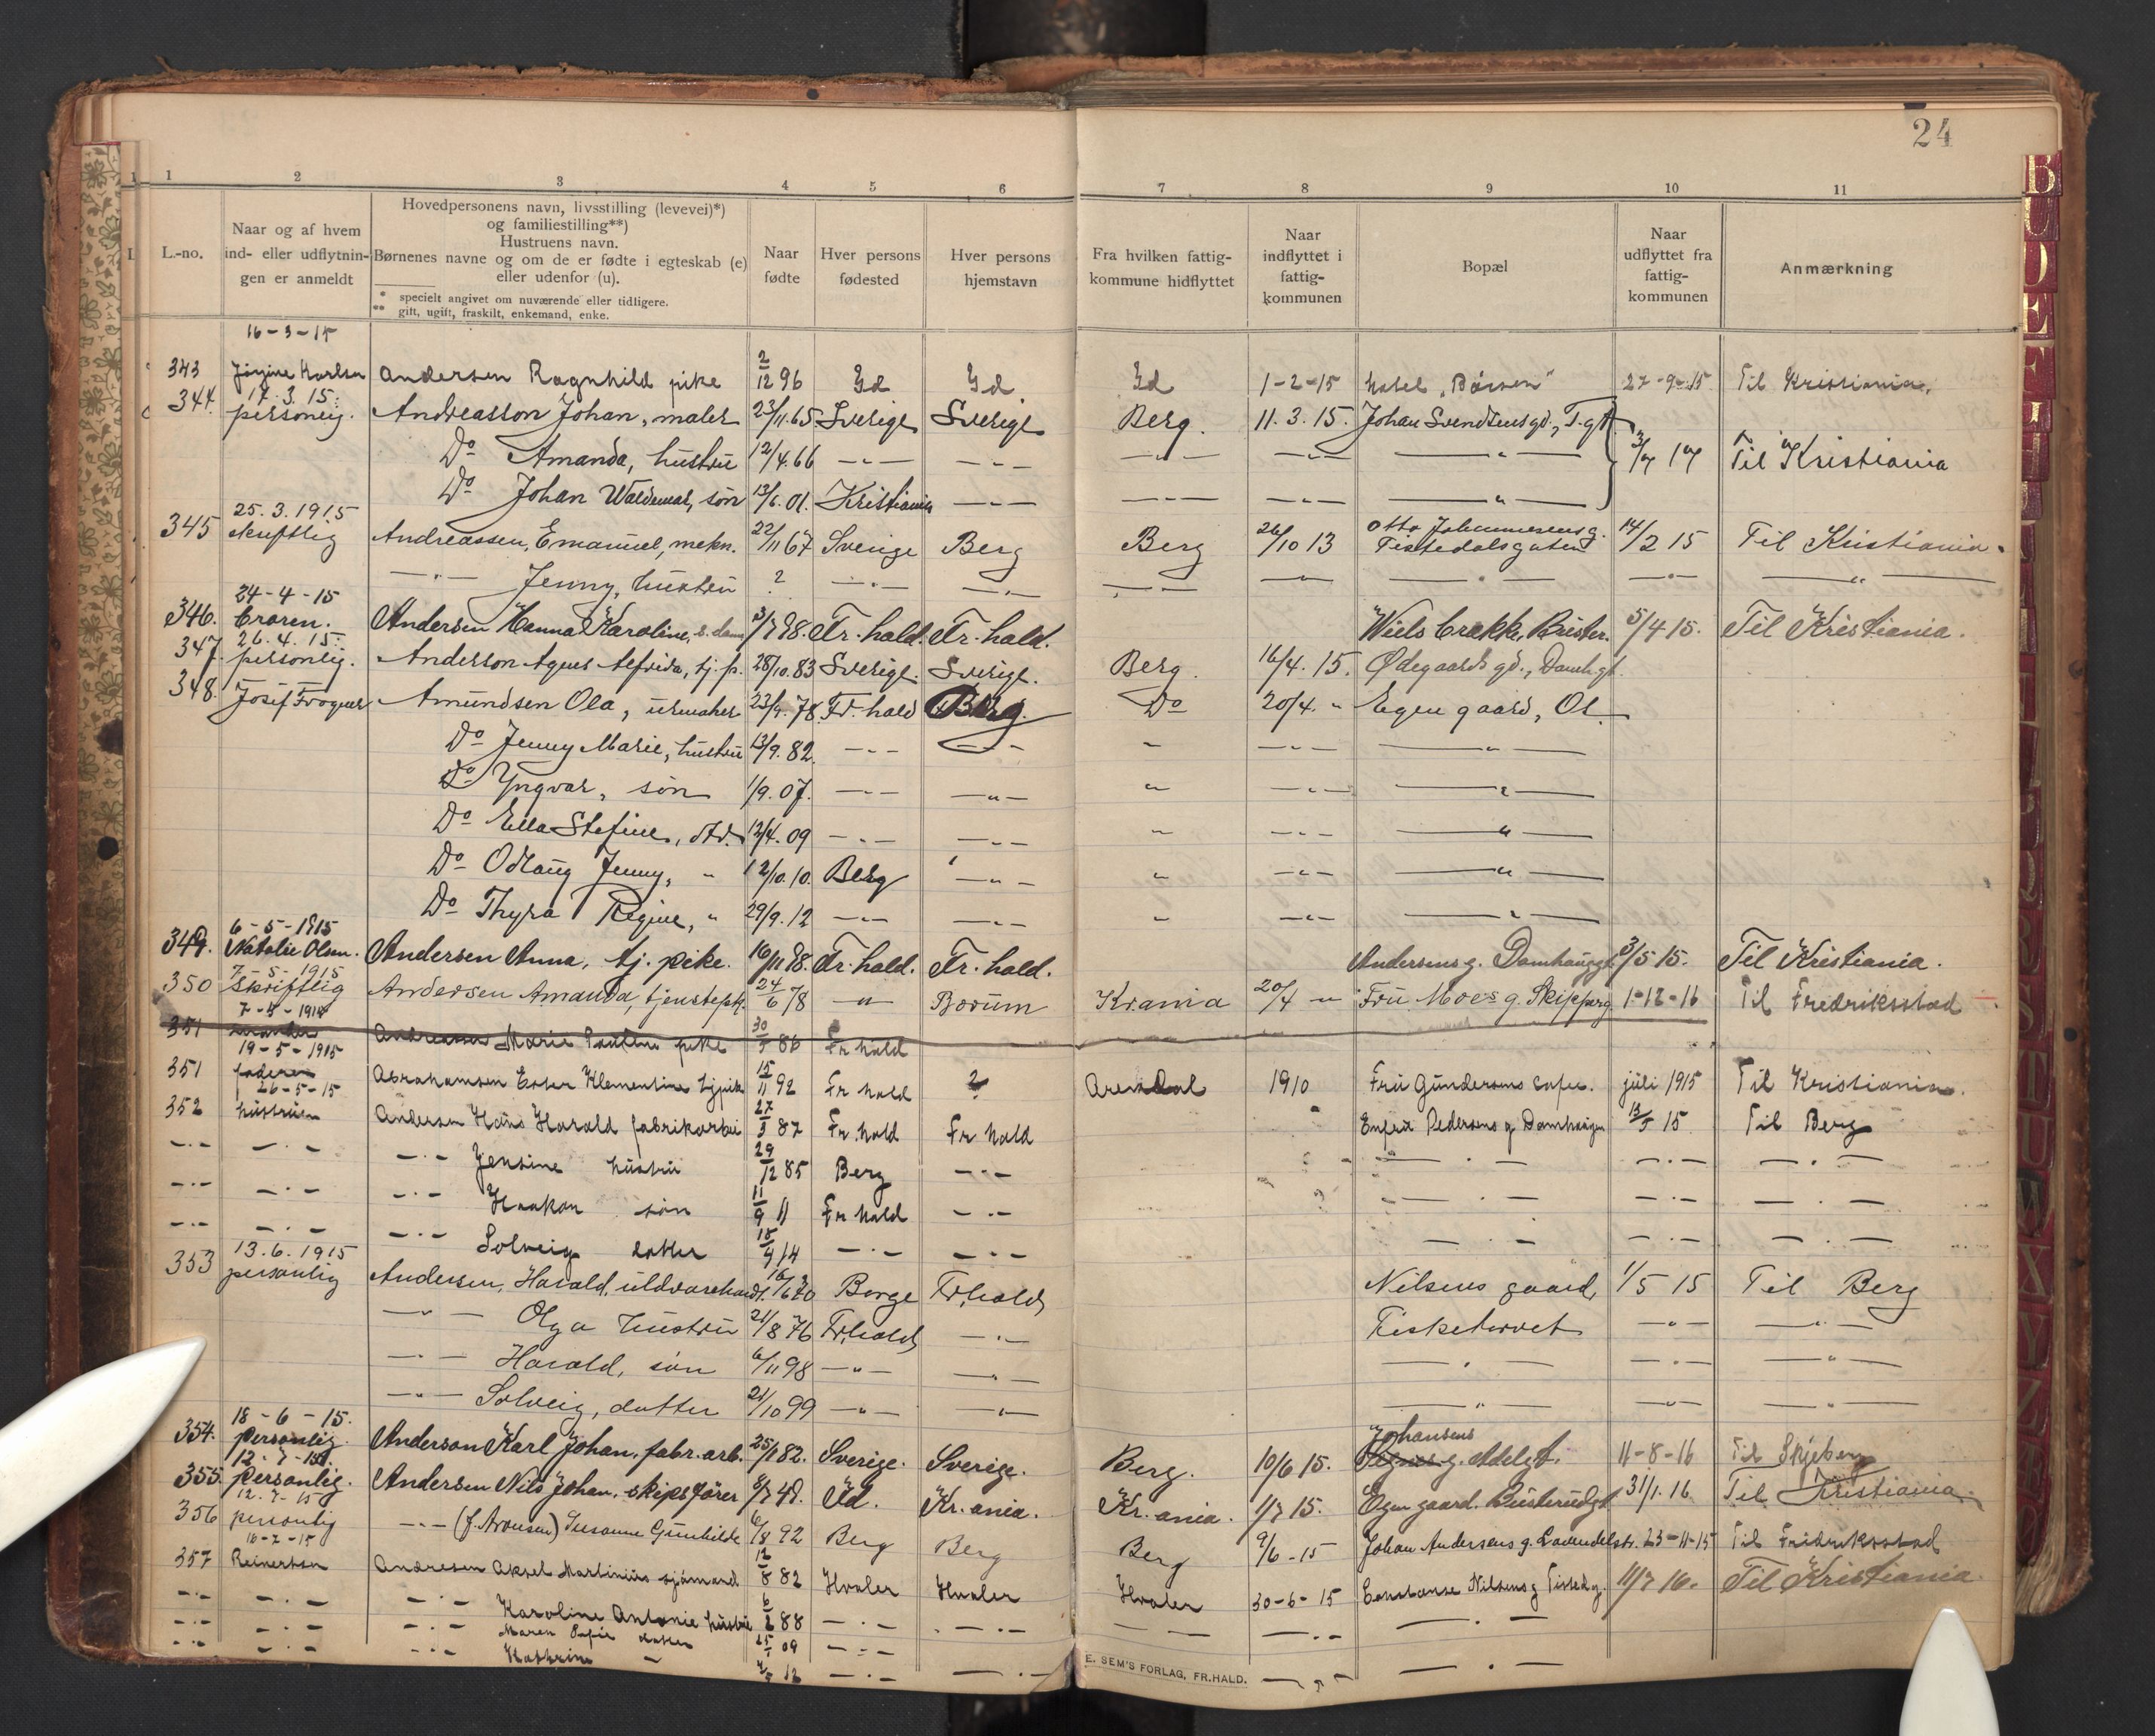 24
1 2 3 4 5 6 7 8 9 10 11
L.-no.
Naar og af hvem ind- eller udflytningen er anmeldt
Hovedpersonens navn, livsstilling (levevei)*) og familiestilling**) Hustruens navn. Børnenes navne og om de er fødte i egteskab (e) eller udenfor (u).
* specielt angivet om nuværende eller tidligere.
** gift, ugift, fraskilt, enkemand, enke.
Naar fødte
Hver persons fødested
Hver persons hjemstavn
Fra hvilken fattigkommune hidflyttet
Naar indflyttet i fattigkommunen
Bopæl
Naar udflyttet fra fattigkommunen
Anmærkning
16-3-15
343 Jørgine Karlsen Andersen Ragnhild pike 2/12 96 Id Id Id 1-2-15 hotel „Børsen" 27-9-15 Til Kristiania.
17.3.15.
344. personlig. Andreasson Johan, maler 23/11.65. Sverige Sverige Berg. 11.3.15. Johan Svendsensgd., T.gt. 3/7 17 Til Kristiania
Do Amanda, hustru 12/4.66 -"- -"- -"- -"- -"-
Do Johan Waldemar, søn 13/6.01. Kristiania -"- -"- -"- -"-
25.3.1915
345 skriftlig Andreassen, Emanuel, mekn. 22/11 67 Sverige Berg Berg 26/10 13 Otto Johannesensg. Tistedalsgaten 14/2 15 Til Kristiania.
-"- Jenny, hustru ? -"- -"- -"- -"- -"- -"- -"-
24-4-15
346. broren. Andersen Hanna Karoline, s.dame 3/7 98. Fr.hald. Fr.hald. Niels brekke, Brister. 5/4 15. Til Kristiania.
26.4.15.
347. personlig. Anderson Agnes Alfrida, tj.p. 28/10.83 Sverige. Sverige. Berg. 16/4.15. Ødegaards gd., Damhgt.
348. Josef Frogner Amundsen Ola, urmaker 23/9.78 Fr.hald Berg. Do 20/4. " Egen gaard, Ol.
Do Jenny Marie, hustru 13/9.82. -"- -"- " -"- -"-
Do Yngvar, søn 1/9.07. -"- -"- " -"- -"-
Do Ella Stefine, dtr. 12/4.09 -"- -"- " -"- -"-
Do Odlaug Jenny, " 12/10.10. Berg -"- " -"- -"-
Do Thyra Regine, " 29/9.12 -"- -"- " -"- -"-
6-5-1915
349. Natalie Olsen. Andersen Anna, tj. pike. 16/11 98. Fr.hald. Fr.hald. Andersens g. Damhauggt. 3/5 15. Til Kristiania.
7-5-1915
350 skriftlig Andersen Amanda, tjenstepk. 24/6 78 -"- Borum Krania 20/4 -"- Fru Moes g. Skipperg. 1-12-16 Til Fredriksstad
7-5-1915
351 Andreassen Marie Pauline pike 30/5 86 Fr hald
19-5-1915
351 faderen Abrahamsen Ester Klementine tjpik 15/11 92 Fr hald ? Arendal 1910 Fru Gundersens cafee. juli 1915 Til Kristiania.
26-5-15
352 hustruen Andersen Hans Harald fabrikarbei 27/3 87 Fr.hald Fr hald Enfru Pedersens g Damhaugen 13/5 15 Til Berg
-"- -"- -"- Jensine hustru 29/12 85 Berg -"- -"- -"- -"-
-"- -"- -"- Haakon søn 11/9 11 Fr hald -"- -"- -"- -"-
-"- -"- -"- Solveig datter 18/4 14 -"- -"- -"- -"- -"-
13.6.1915
353 personlig Andersen, Harald, uldvarehandl. 16/6 70 Borge Fr,hald, Nilsens gaard, 1/5 15 Til Berg
-"- Olga hustru 21/8 76 Fr,hald, -"- Fisketorvet -"- -"-
-"- Harald, søn 6/11 98 -"- -"- -"- -"- -"-
-"- Solveig, datter 21/10 99 -"- -"- -"- -"- -"-
18-6-15.
354. personlig. Anderson Karl Johan, fabr.arb. 25/11 82. Sverige. Sverige. Berg. 10/6 15. Johansens g. Adelgt. 11-8-16 Til Skjeberg
12-7-15.
355. personlig. Andersen Nils Johan, skipsfører 8/7 48. Id. Kr.ania. Kr.ania. 1/7 15. Egen gaard. Busterudgt. 31/1.16. Til Kristiania.
12.7-15
356 personlig -"- (f.Arvesen) Susanne Gunhilde 6/8 92 Berg Berg Berg 9/6-15 Johan Andersens g. Lavendelstr. 23-11-15 Til Fredriksstad
16-7-15
357 Reinertsen Andresen Aksel Martinius sjømand 12/8 82 Hvaler Hvaler Hvaler 30-6-15 Constanse Nilsens g Tistedg. 11/7 16. Til Kristiania.
-"- -"- -"- Karoline Antonie hustru 6/2 88 -"- -"- -"- -"- -"-
-"- -"- -"- Maren Sofie datter 09
-"- -"- -"- Kathrine " 12 -"- -"- -"- -"-
E. SEM'S FORLAG, FR.HALD.
B
U
D
E